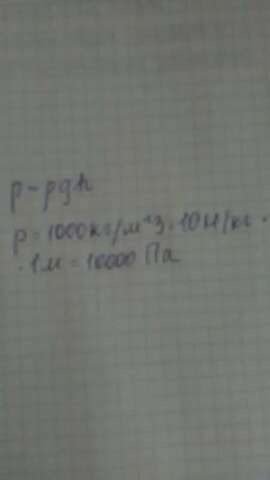 p = ρgh
p = 1000кг/м^3 · 10Н/кг ·
· 1м = 10000 Па